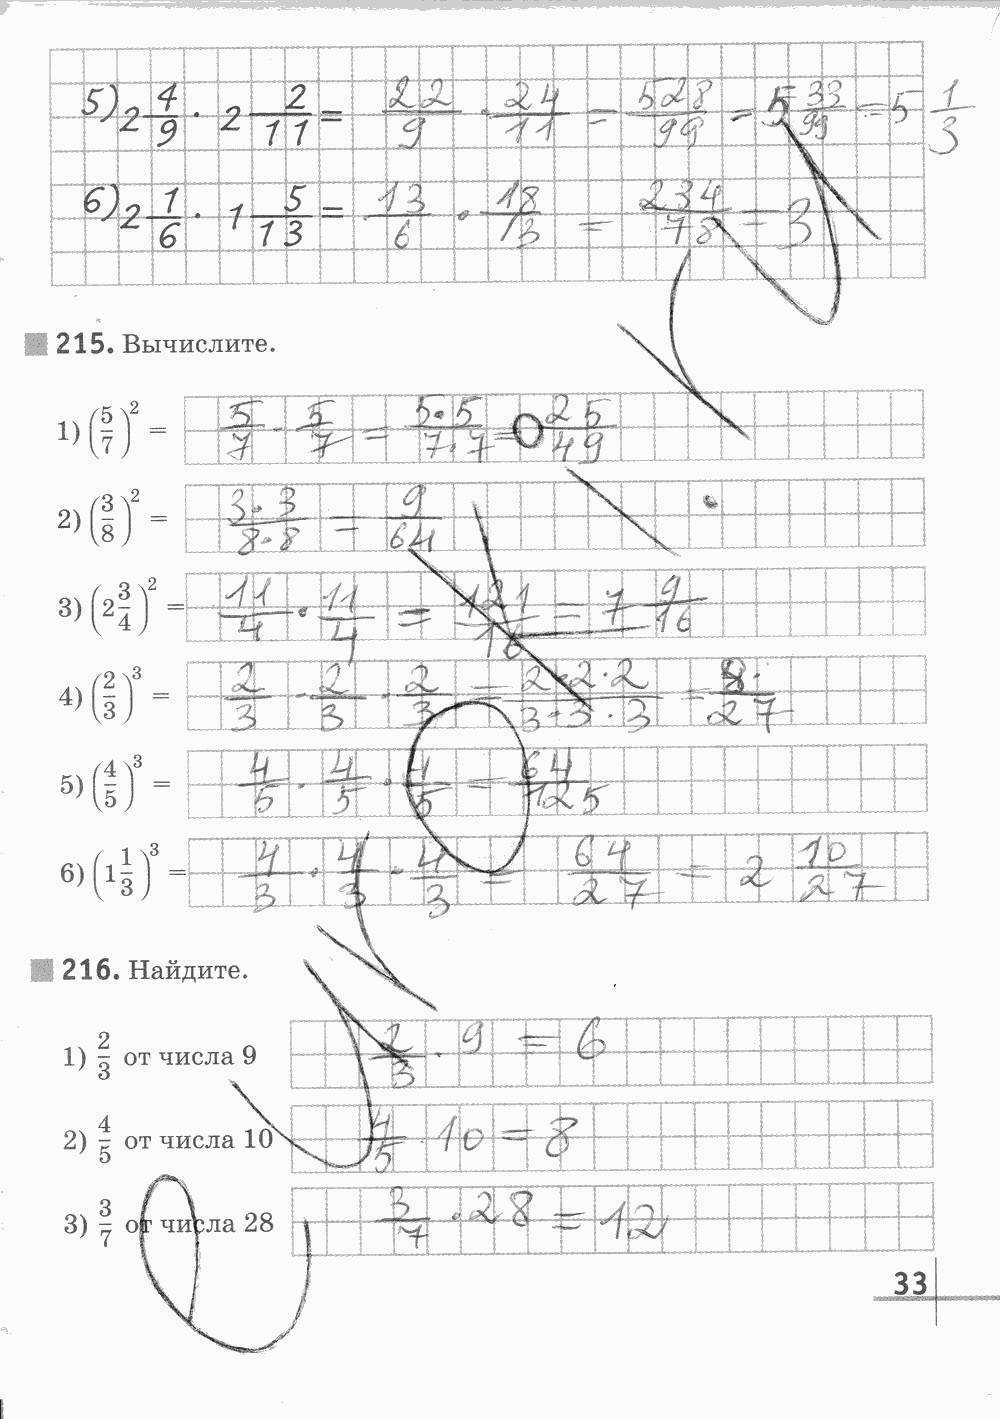 5) 2 4/9 · 2 2/11 = 22/9 · 24/11 = 528/99 = 5 33/99 = 5 1/3
6) 2 1/6 · 1 5/13 = 13/6 · 18/13 = 234/78 = 3
215. Вычислите.
1) (5/7)² = 5/7 · 5/7 = 5·5/7·7 = 25/49
2) (3/8)² = 3·3/8·8 = 9/64
3) (2 3/4)² = 11/4 · 11/4 = 121/16 = 7 9/16
4) (2/3)³ = 2/3 · 2/3 · 2/3 = 2·2·2/3·3·3 = 8/27
5) (4/5)³ = 4/5 · 4/5 · 4/5 = 64/125
6) (1 1/3)³ = 4/3 · 4/3 · 4/3 = 64/27 = 2 10/27
216. Найдите.
1) 2/3 от числа 9 2/3 · 9 = 6
2) 4/5 от числа 10 4/5 · 10 = 8
3) 3/7 от числа 28 3/7 · 28 = 12
33